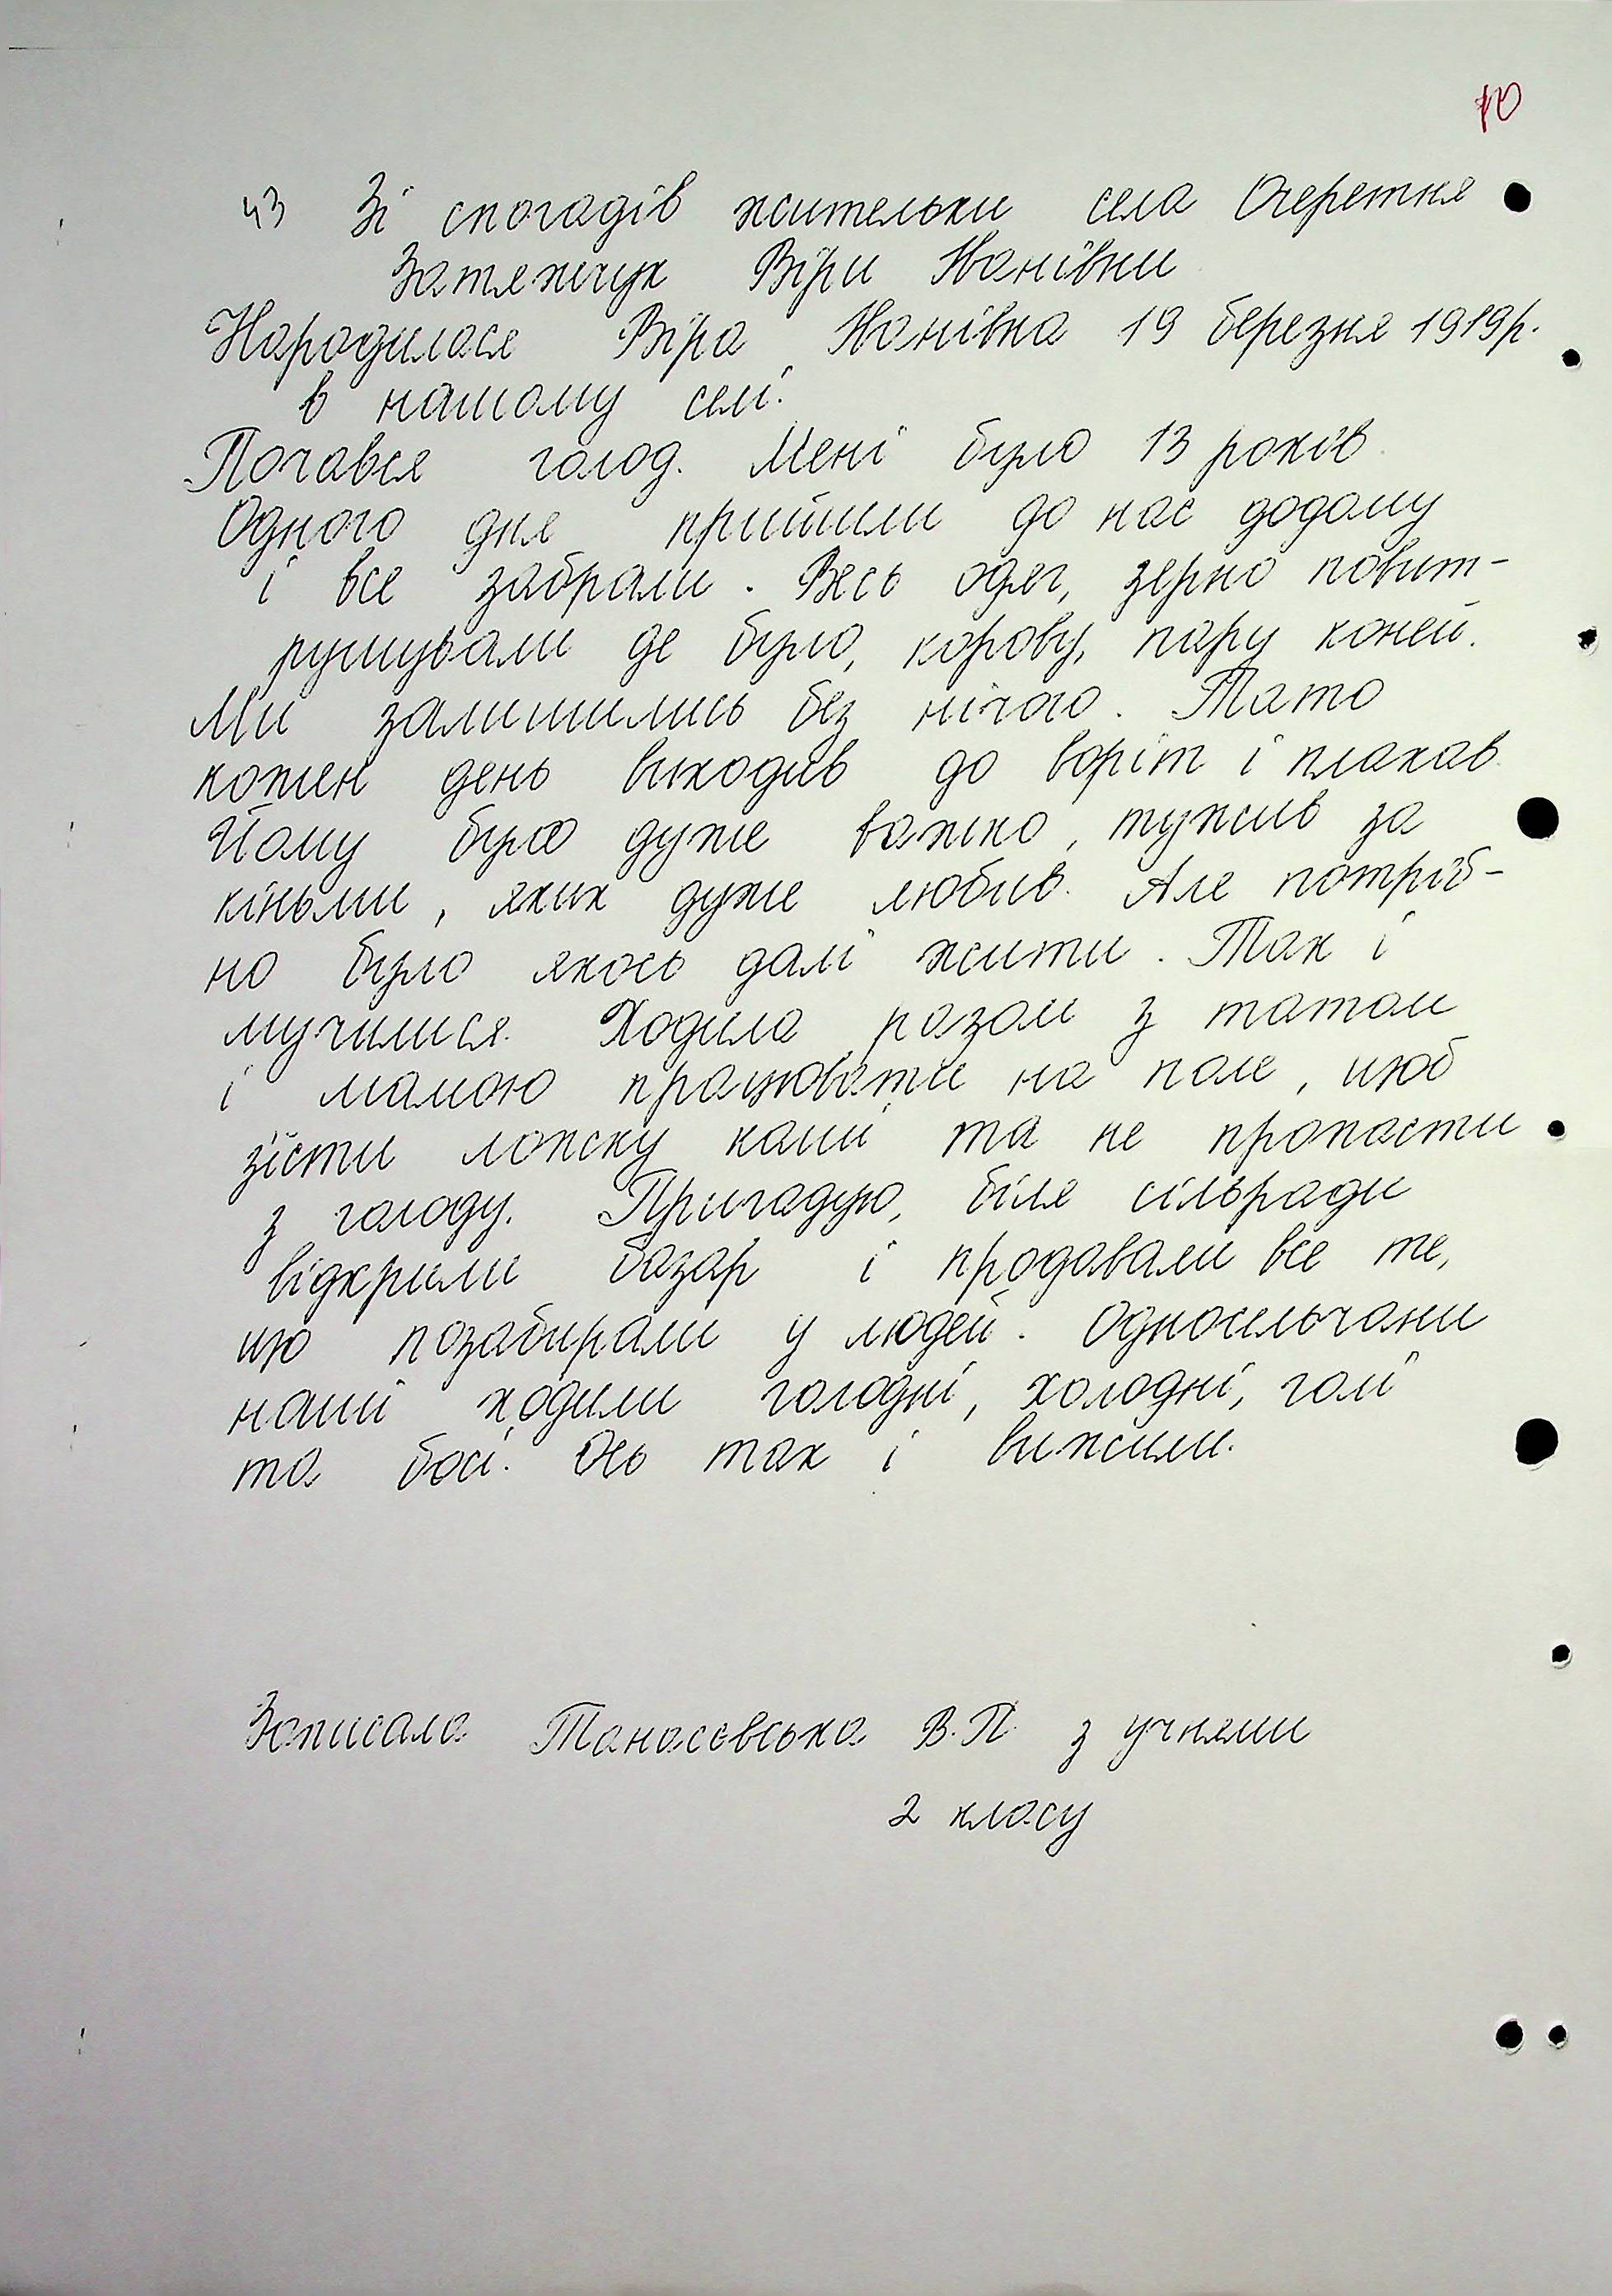 10
43 Зі спогадів жительки села Очеретня
Затяжчук Віри Іванівни
Народилася Віра Іванівна 19 березня 1919р.
в нашому селі.
Почався голод. Мені було 13 років.
Одного дня прийшли до нас додому
і все забрали. Весь одяг, зерно повит-
рушували де було, корову, пару коней.
Ми залишились без нічого. Тато
кожен день виходив до воріт і плакав.
Йому було дуже важко, тужив за
кіньми, яких дуже любив. Але потріб-
но було якось далі жити. Так і
мучилися. Ходила разом з татом
і мамою працювати на поле, щоб
зїсти ложку каші та не пропасти
з голоду. Пригадую, біля сільради
відкрили базар і продавали все те,
що позабирали у людей. Односельчани
наші ходили голодні, холодні, голі
та босі. Ось так і вижили.
Записала Танасєвська В.П. з учнями
2 класу